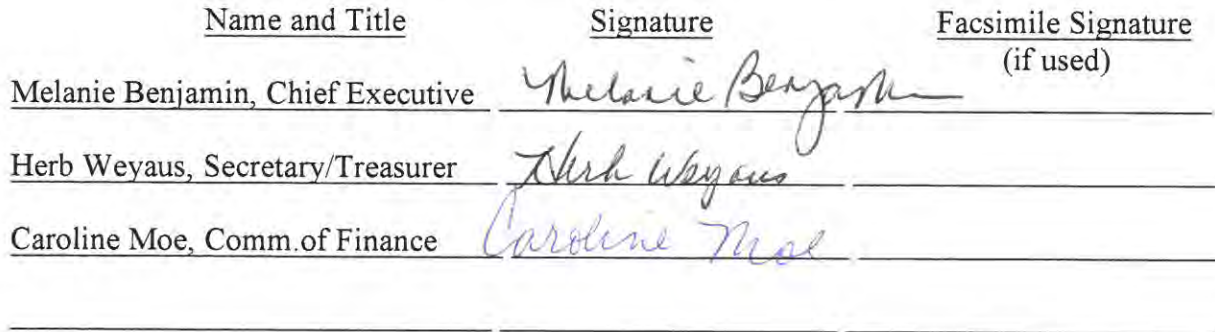 Name and Title Signature Facsimile Signature
(if used)
Melanie Benjamin, Chief Executive Melanie Benjamin
Herb Weyaus, Secretary/Treasurer Herb Weyaus
Caroline Moe, Comm.of Finance Caroline Moe